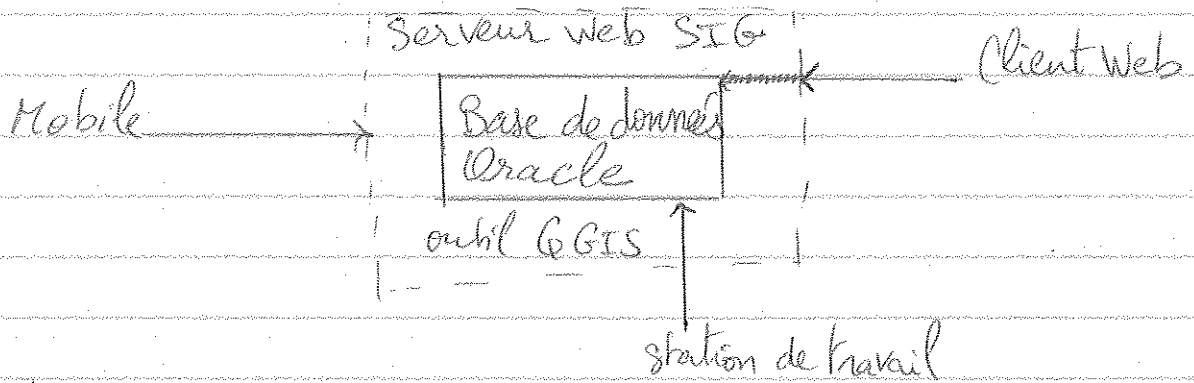 Serveur Web SIG
Client Web
Mobile
Base de données
Oracle
outil QGIS
station de travail